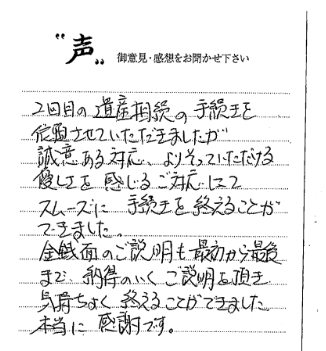 “声”
御意見・感想をお聞かせ下さい
2回目の遺産相続の手続きを
依頼させていただきましたが
誠意ある対応、よりそっていただける
優しさを感じるご対応にて
スムーズに手続きを終えることが
できました。
金銭面のご説明も最初から最後
まで納得のいくご説明を頂き
気持ちよく終えることができました
本当に感謝です。